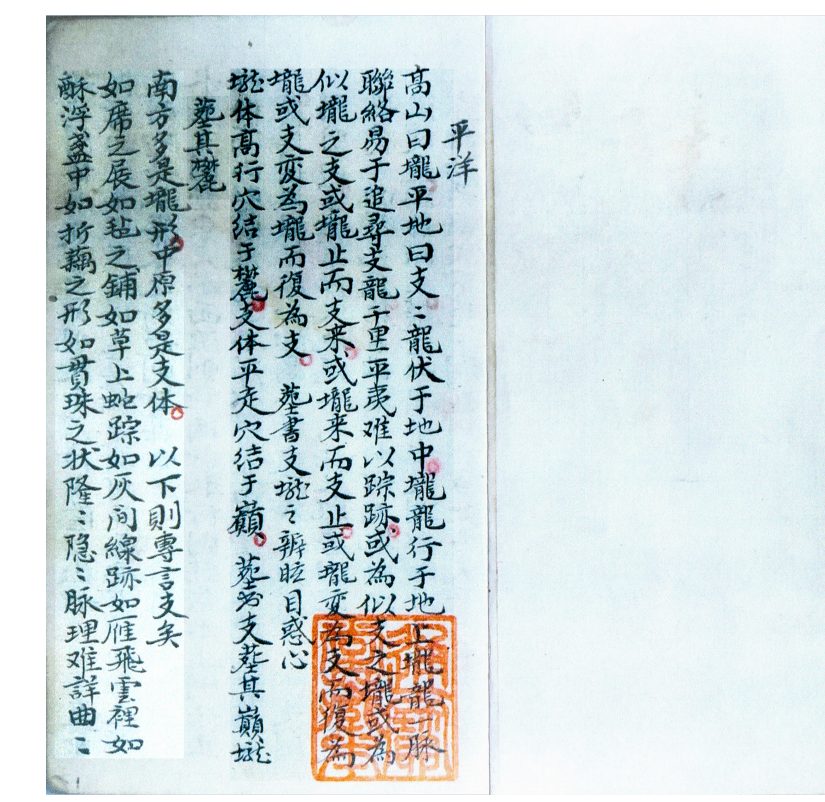 平洋
高山曰壠平地曰支〻龍伏于地中壠龍行于地上壠龍一脉
聯絡易于追尋支龍千里平夷难以踪跡或為似支之壠或為
似壠之支或壠止而支来或壠来而支止或壠变為支而復為
壠或支変為壠而復為支 葬書支壠之辨眩目惑心
壠体高行穴结于麓支体平走穴结于巔 葬书支葬其巔壠
葬其麓
南方多是壠形中原多是支体 以下則專言支矣
如席之展如毡之鋪如草上蛇踪如灰间線跡如雁飛雲裡如
酥浮盏中如折藕之形如貫珠之状隆〻隐〻脉理难詳曲〻